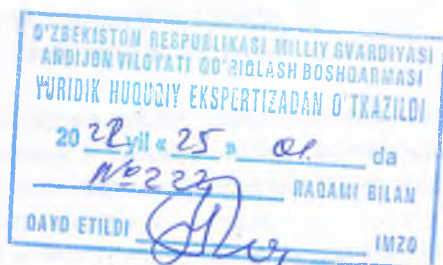 O'ZBEKISTON RESPUBLIKASI MILLIY GVARDIYASI
ANDIJON VILOYATI QO'RIQLASH BOSHQARMASI
YURIDIK HUQUQIY EKSPERTIZADAN O'TKAZILDI
2022 yil « 25 » 01. da
№222 RAQAMI BILAN
QAYD ETILDI IMZO